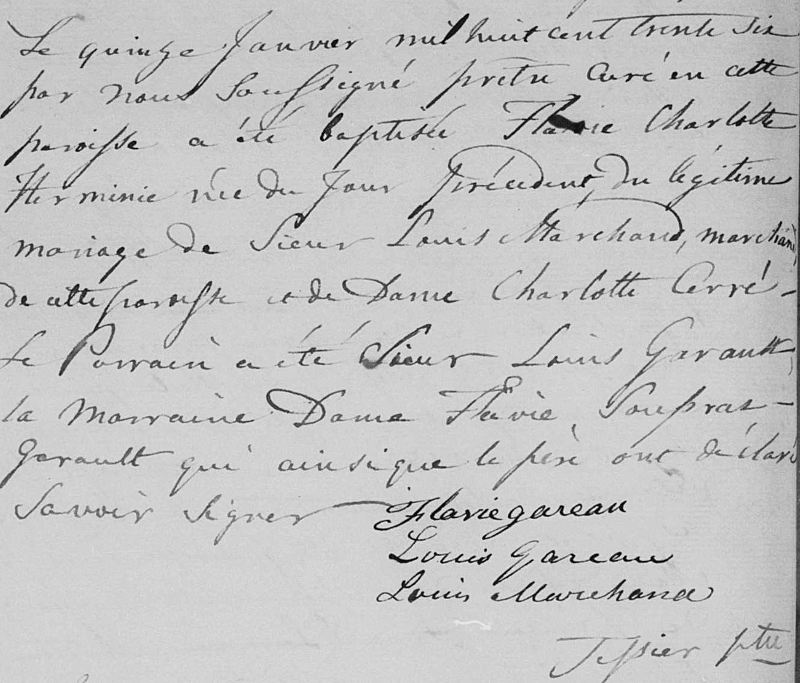 Le quinze Janvier mil huit cent trente six
par nous Soussigné prêtre Curé en cette
paroisse a été baptisée Flavie Charlotte
Herminie née du Jour précédent, du légitime
mariage de Sieur Louis Marchand, marchand,
de cette paroisse et de Dame Charlotte Cerré -
Le Parrain a été Sieur Louis Garault,
la Marraine Dame Flavie Soupras -
Garault qui ainsi que le père ont déclaré
Savoir Signer
Flavie gareau
Louis Gareau
Louis Marchand
Tessier ptre